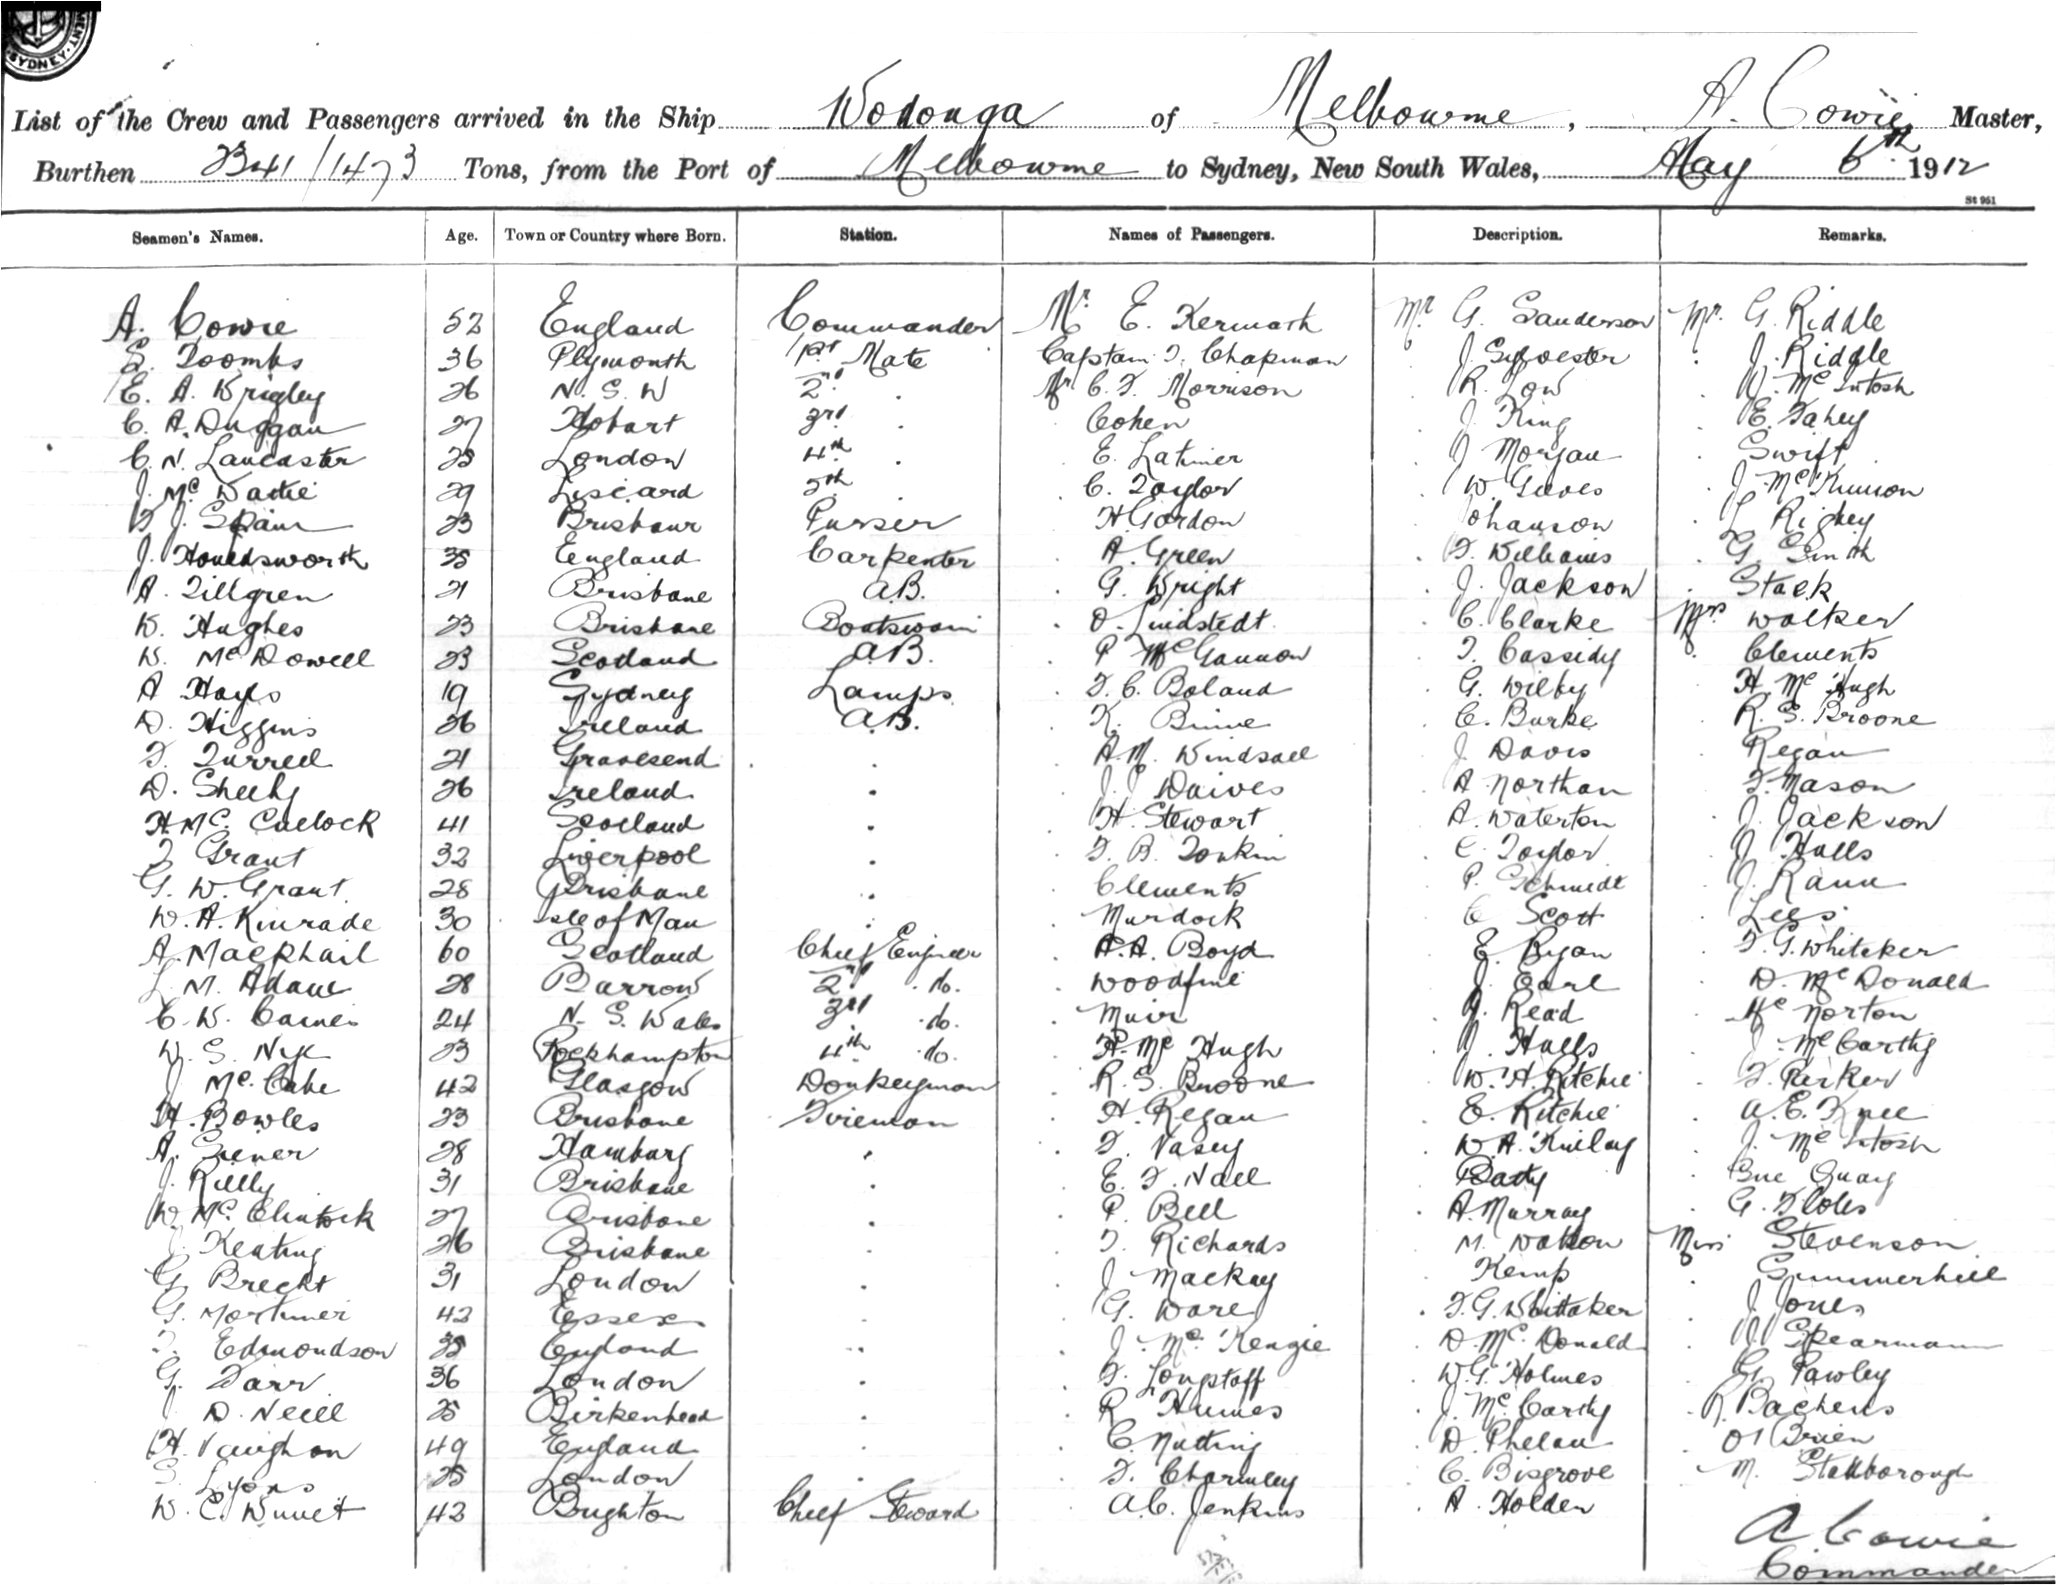 SYDNEY
List of the Crew and Passengers arrived in the Ship Wodonga of Melbourne, A. Cowie Master,
Burthen 2341/1473 Tons, from the Port of Melbourne to Sydney, New South Wales, May 6th 1912
St 951
Seamen's Names. Age. Town or Country where Born. Station. Names of Passengers. Description. Remarks.
A. Cowie 52 England Commander Mr. E. Kermath Mr G. Sanderson Mr. G. Riddle
S. Toombs 36 Plymouth 1st Mate Captain T. Chapman J. Sylvester J. Riddle
E. A. Wrigley 26 N. S. W 2nd . Mr C. F. Morrison R. Low . McIntosh
C. A. Duggan 27 Hobart 3rd . Cohen J. King E. Fahey
C. N. Lancaster 25 London 4th . E. Latimer J Morgan Swift
J. Mc 29 Liscard 5th . C. Taylor W. Groves J. McKinnon
J. Spain 23 Brisbane Purser H Gordon Johanson Rigby
J. Houldsworth 35 England Carpenter A. Green . T. Williams G. Smith
A. Tillgren 21 Brisbane A.B. . G. Wright J. Jackson . Stack
W. Hughes 23 Brisbane Boatswain . O. Lindstedt . C. Clarke Mrs Walker
W. McDowell 23 Scotland A.B. . P McGannon . T. Cassidy . Clements
A Hayes 19 Sydney Lamps . T. C. Boland . G. Wilby H. McHugh
D. Higgins 26 Ireland A.B. . K. Binne . C. Burke . R. S. Broone
T. Turrell 21 Gravesend . . A. M. Windsall . J Davis . Regan
D. Sheehy 26 Ireland . J. J Daives . A Northan . T. Mason
H. Mc. Cullock 41 Scotland . . H. Stewart A. Waterton . J. Jackson
J Grant 32 Liverpool . . T. B. Tonkin . C. Taylor . J Hulls
G. W. Grant 28 Brisbane . . Clements . P. Schmidt . J. Rann
W. A. Kinrade 30 Isle of Man . . Murdock . C Scott . Lees
A. Macphail 60 Scotland Chief Engineer . A. A. Boyd . E. Ryan . T. G. Whiteker
L. M. Adam 28 Barrow 2nd . do. . Woodfine . J. Earl . D. McDonald
C. W. Carnes 24 N. S. Wales 3rd . do. . Muir . J. Read . Mc Norton
W. S. Nye 23 Rockhampton 4th . do. . H. Mc Hugh . J. Hulls . J McCarthy
J Mc. Cabe 42 Glasgow Donkeyman . R. S. Broone . W. H. Ritchie . T. Parker
H. Bowles 23 Brisbane Fireman . H. Regan . E. Ritchie . A. E. Knee
A. Siener 28 Hamburg . . T. Vasey . W. A. Finlay . J. McIntosh
J. Reilly 31 Brisbane . . E. T. Nall . Batty . Gue Quay
W. Mc. Clintock 27 Brisbane . . P. Bell . A. Murray . G.
J. Keating 26 Brisbane . . T. Richards . M. Watson Miss Stevenson
G Brecht 31 London . . J Mackay . Kemp . Summerhill
G. Mortimer 42 Essex . . G. Ware . T. G. Whittaker . J Jones
T. Edmondson 35 England . . J. Mc. Kenzie . D. Mc. Donald . J Spearman
G. Farr 36 London . . T. Longstaff . W. G. Holmes . G. Pawley
D. Neill 25 Birkenhead . . R Humes . J. McCarthy . R. Bachens
H. Vaughan 49 England . . C. Nutting . D. Phelan . O'Brien
S. Lyons 25 London . . T. Charmley . C. Bisgrove . M. Stallborough
W. C. 42 Brighton Chief Steward . A. C. Jenkins . A. Holden
A Cowie
Commander